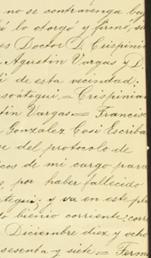 no se contravenga
lo otorgó y firmó,
es Doctor D. Crispinia
Agustin Vargas y D.
de esta vecindad:
soátegui = Crispinia
tin Vargas = Frances
Gonzalez Cosi Escriba
se del protocolo de
cos de mi cargo para
por haber fallecido
tegui; y va en este
bienio corriente;
Diciembre diez y ocho
sesenta y siete = Ferm